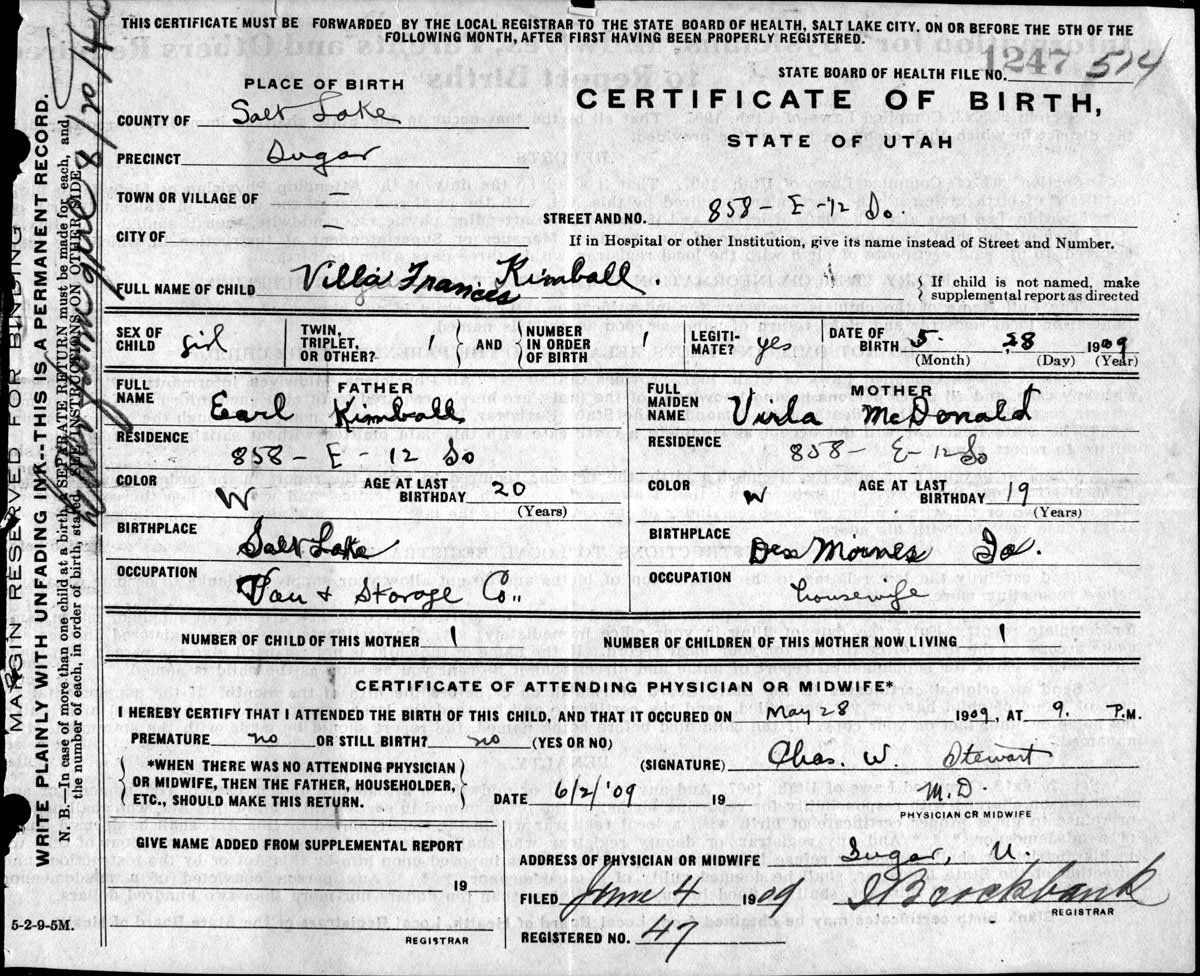 THIS CERTIFICATE MUST BE FORWARDED BY THE LOCAL REGISTRAR TO THE STATE BOARD OF HEALTH, SALT LAKE CITY. ON OR BEFORE THE 5TH OF THE
FOLLOWING MONTH, AFTER FIRST HAVING BEEN PROPERLY REGISTERED.
STATE BOARD OF HEALTH FILE NO. 1247 514
PLACE OF BIRTH
CERTIFICATE OF BIRTH,
STATE OF UTAH
COUNTY OF Salt Lake
PRECINCT Sugar
TOWN OR VILLAGE OF
STREET AND NO. 858 - E - 12 So
CITY OF —
If in Hospital or other Institution, give its name instead of Street and Number.
FULL NAME OF CHILD Villa Frances Kimball.
If child is not named, make
supplemental report as directed
SEX OF CHILD girl
TWIN, TRIPLET, OR OTHER? 1
AND
NUMBER IN ORDER OF BIRTH 1
LEGITI-MATE? yes
DATE OF BIRTH 5 28 1909
(Month) (Day) (Year)
FATHER
FULL NAME Earl Kimball
RESIDENCE
858 - E - 12 So
COLOR W
AGE AT LAST BIRTHDAY 20
(Years)
BIRTHPLACE
Salt Lake
OCCUPATION
Van & Storage Co.
MOTHER
FULL MAIDEN NAME Virla McDonald
RESIDENCE
858 - E - 12 So
COLOR W
AGE AT LAST BIRTHDAY 19
(Years)
BIRTHPLACE
Des Moines Ia.
OCCUPATION
housewife
NUMBER OF CHILD OF THIS MOTHER 1
NUMBER OF CHILDREN OF THIS MOTHER NOW LIVING 1
CERTIFICATE OF ATTENDING PHYSICIAN OR MIDWIFE*
I HEREBY CERTIFY THAT I ATTENDED THE BIRTH OF THIS CHILD, AND THAT IT OCCURED ON May 28 1909, AT 9. P.M.
PREMATURE no OR STILL BIRTH? no (YES OR NO)
(SIGNATURE) Chas. W. Stewart
*WHEN THERE WAS NO ATTENDING PHYSICIAN
OR MIDWIFE, THEN THE FATHER, HOUSEHOLDER,
ETC., SHOULD MAKE THIS RETURN.
DATE 6/2/'09 19
M.D.
PHYSICIAN OR MIDWIFE
GIVE NAME ADDED FROM SUPPLEMENTAL REPORT
19
REGISTRAR
ADDRESS OF PHYSICIAN OR MIDWIFE Sugar, U.
FILED June 4 1909
Brockbank
REGISTRAR
REGISTERED NO. 47
5-2-9-5M.
MARGIN RESERVED FOR BINDING
WRITE PLAINLY WITH UNFADING INK---THIS IS A PERMANENT RECORD.
N. B.—In case of more than one child at a birth, a SEPARATE RETURN must be made for each, and,
the number of each, in order of birth, stated. SEE INSTRUCTIONS ON OTHER SIDE.